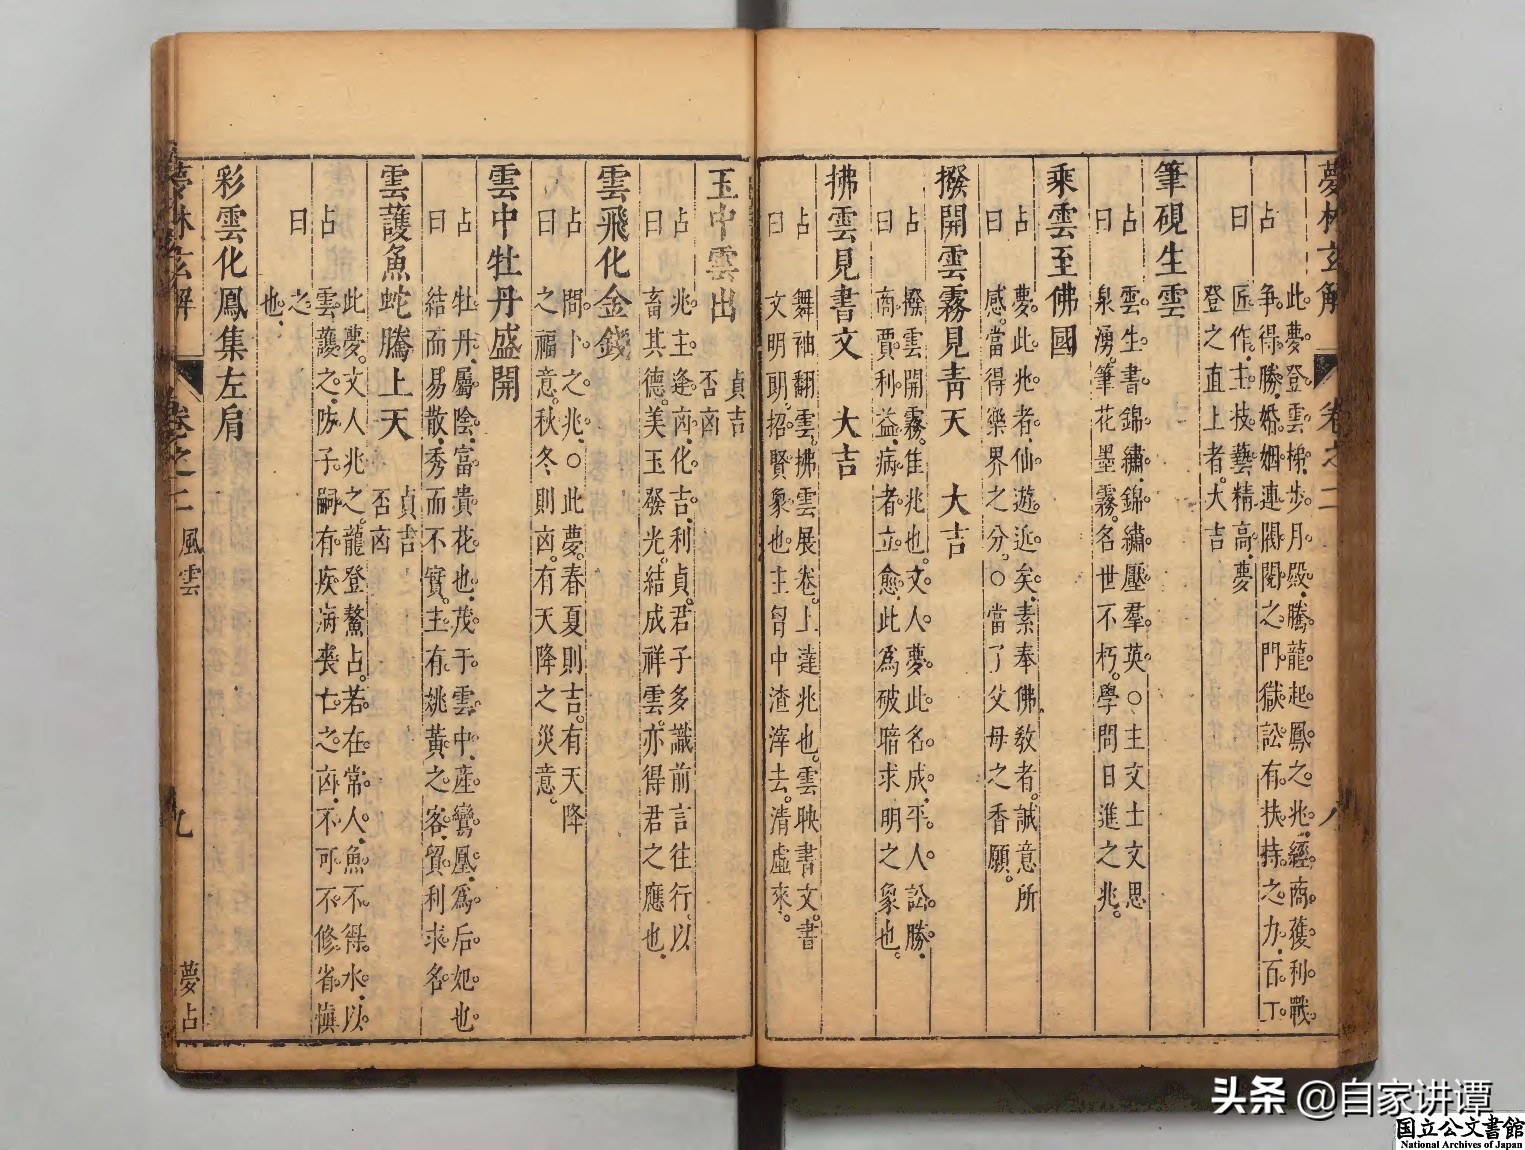 夢林玄解
卷之二
八
此夢登雲梯步月殿騰龍起鳳之兆經商獲利戰
占
爭得勝婚姻連閥閱之門獄訟有扶持之力百工
曰
匠作主技藝精高夢
登之直上者大吉
筆硯生雲
占
雲生書錦繡錦繡壓羣英○主文士文思
曰
泉湧筆花墨霧名世不朽學問日進之兆
乘雲至佛國
占
夢此兆者仙遊近矣素奉佛教者誠意所
曰
感當得樂界之分○當了父母之香願
撥開雲霧見青天 大吉
占
撥雲開霧佳兆也文人夢此名成平人訟勝
曰
商賈利益病者立愈此爲破暗求明之象也
拂雲見書文 大吉
占
舞袖翻雲拂雲展卷上達兆也雲映書文書
曰
文明朗招賢象也主胷中渣滓去清虛來
玉中雲出
貞吉
否凶
占
兆主逢凶化吉利貞君子多識前言往行以
曰
畜其德美玉發光結成祥雲亦得君之應也
雲飛化金錢
占
問卜之兆○此夢春夏則吉有天降
曰
之福意秋冬則凶有天降之災意
雲中牡丹盛開
占
牡丹屬陰富貴花也茂于雲中產鸞鳳爲后妃也
曰
結而易散秀而不實主有姚黃之客貿利求名
雲護魚蛇騰上天
貞吉
否凶
占
此夢文人兆之龍登鰲占若在常人魚不得水以
雲護之防子嗣有疾病喪亡之凶不可不修省愼
曰
之
也
彩雲化鳳集左肩
夢林玄解
卷之二
風雲
九
夢占
头条 @自家讲谭
国立公文書館
National Archives of Japan